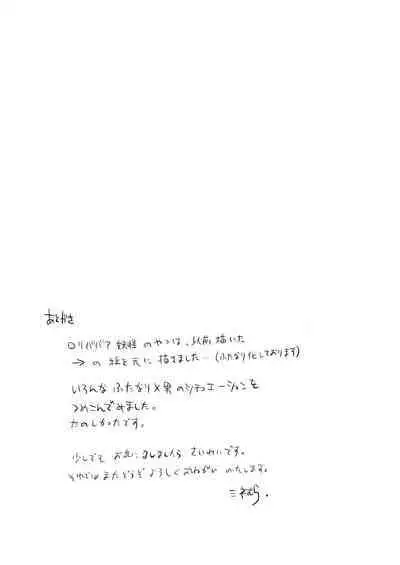 あとがき
ロリババア 妖怪 のやつは、以前 描いた
→ の 絵を元に 描きました…(ふたなり化しております)
いろんな ふたなり×男 のシチュエーションを
つめこんでみました。
たのしかったです。
少しでも お気に めしましたら さいわいです。
それではまたどうぞ よろしく おねがい いたします。